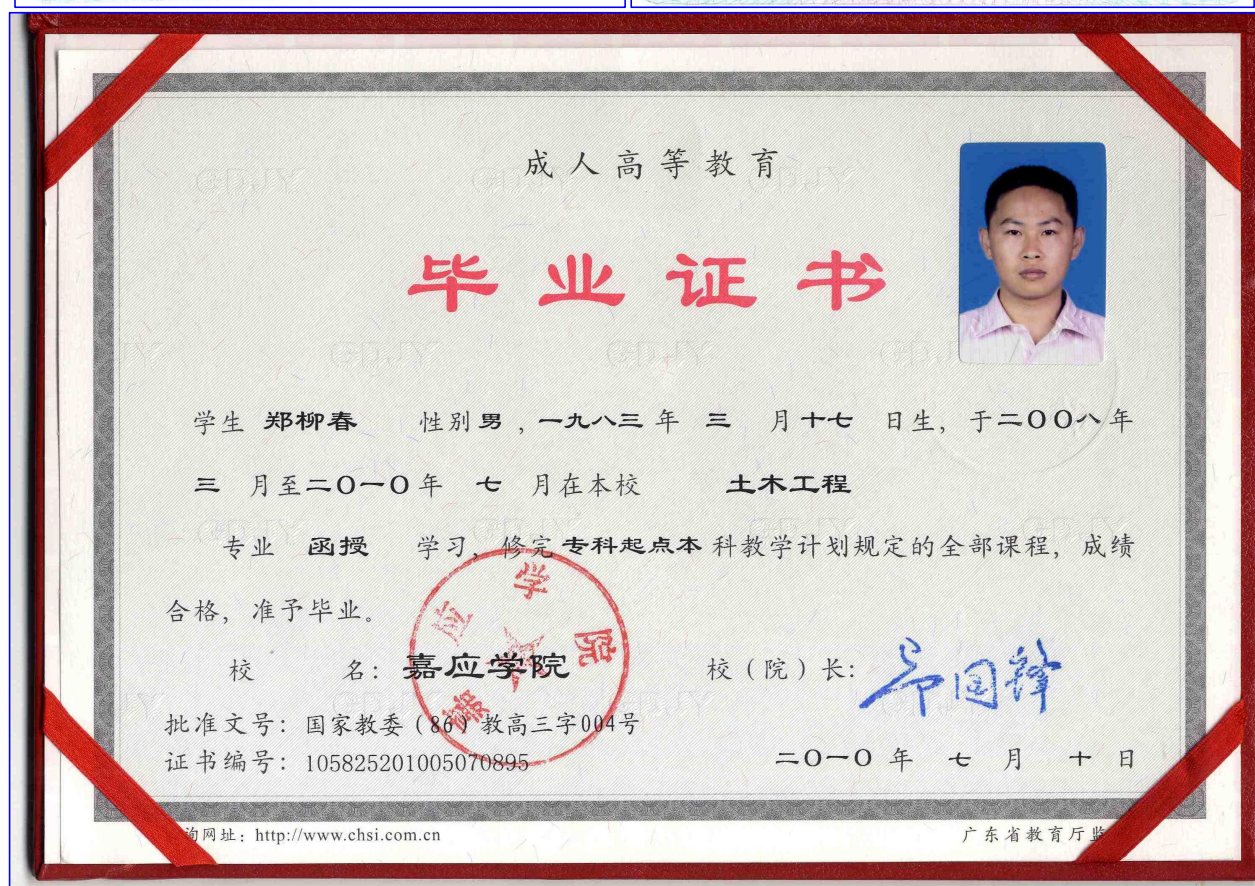 成人高等教育
毕业证书
学生 郑柳春 性别 男 , 一九八三 年 三 月 十七 日生, 于二〇〇八年
三 月至二〇一〇年 七 月在本校 土木工程
专业 函授 学习, 修完 专科起点本 科教学计划规定的全部课程, 成绩
合格, 准予毕业。
校 名: 嘉应学院 校(院)长:
批准文号: 国家教委(86)教高三字004号
证书编号: 105825201005070895 二〇一〇 年 七 月 十 日
询网址: http://www.chsi.com.cn 广东省教育厅监
嘉应学院
GDJY